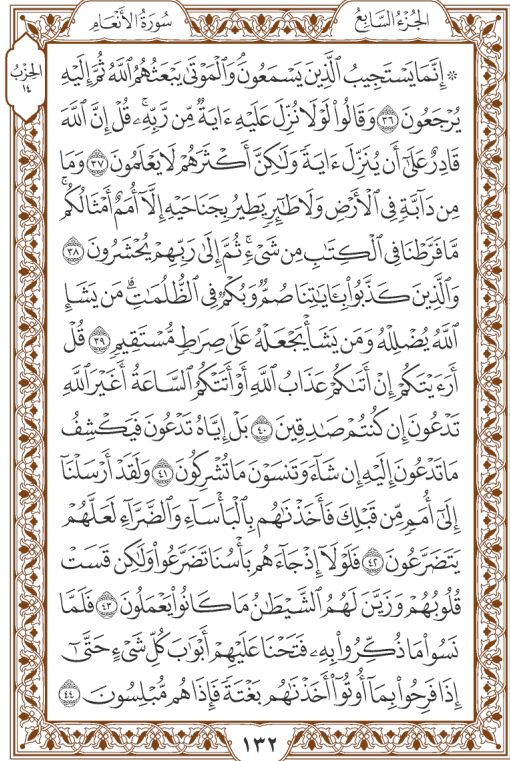 الجُزْءُ السَّابِعُ
سُورَةُ الأَنْعَامِ
الحِزْبُ
١٤
۞ إِنَّمَا يَسْتَجِيبُ ٱلَّذِينَ يَسْمَعُونَۘ وَٱلْمَوْتَىٰ يَبْعَثُهُمُ ٱللَّهُ ثُمَّ إِلَيْهِ
يُرْجَعُونَ ٣٦ وَقَالُوا۟ لَوْلَا نُزِّلَ عَلَيْهِ ءَايَةٌ مِّن رَّبِّهِۦۚ قُلْ إِنَّ ٱللَّهَ
قَادِرٌ عَلَىٰٓ أَن يُنَزِّلَ ءَايَةً وَلَـٰكِنَّ أَكْثَرَهُمْ لَا يَعْلَمُونَ ٣٧ وَمَا
مِن دَآبَّةٍ فِى ٱلْأَرْضِ وَلَا طَـٰٓئِرٍ يَطِيرُ بِجَنَاحَيْهِ إِلَّآ أُمَمٌ أَمْثَالُكُمۚ
مَّا فَرَّطْنَا فِى ٱلْكِتَـٰبِ مِن شَىْءٍۚ ثُمَّ إِلَىٰ رَبِّهِمْ يُحْشَرُونَ ٣٨
وَٱلَّذِينَ كَذَّبُوا۟ بِـَٔايَـٰتِنَا صُمٌّ وَبُكْمٌ فِى ٱلظُّلُمَـٰتِۗ مَن يَشَإِ
ٱللَّهُ يُضْلِلْهُ وَمَن يَشَأْ يَجْعَلْهُ عَلَىٰ صِرَٰطٍ مُّسْتَقِيمٍ ٣٩ قُلْ
أَرَءَيْتَكُمْ إِنْ أَتَىٰكُمْ عَذَابُ ٱللَّهِ أَوْ أَتَتْكُمُ ٱلسَّاعَةُ أَغَيْرَ ٱللَّهِ
تَدْعُونَ إِن كُنتُمْ صَـٰدِقِينَ ٤٠ بَلْ إِيَّاهُ تَدْعُونَ فَيَكْشِفُ
مَا تَدْعُونَ إِلَيْهِ إِن شَآءَ وَتَنسَوْنَ مَا تُشْرِكُونَ ٤١ وَلَقَدْ أَرْسَلْنَآ
إِلَىٰٓ أُمَمٍ مِّن قَبْلِكَ فَأَخَذْنَـٰهُم بِٱلْبَأْسَآءِ وَٱلضَّرَّآءِ لَعَلَّهُمْ
يَتَضَرَّعُونَ ٤٢ فَلَوْلَآ إِذْ جَآءَهُم بَأْسُنَا تَضَرَّعُوا۟ وَلَـٰكِن قَسَتْ
قُلُوبُهُمْ وَزَيَّنَ لَهُمُ ٱلشَّيْطَـٰنُ مَا كَانُوا۟ يَعْمَلُونَ ٤٣ فَلَمَّا
نَسُوا۟ مَا ذُكِّرُوا۟ بِهِۦ فَتَحْنَا عَلَيْهِمْ أَبْوَٰبَ كُلِّ شَىْءٍ حَتَّىٰٓ
إِذَا فَرِحُوا۟ بِمَآ أُوتُوٓا۟ أَخَذْنَـٰهُم بَغْتَةً فَإِذَا هُم مُّبْلِسُونَ ٤٤
١٣٢